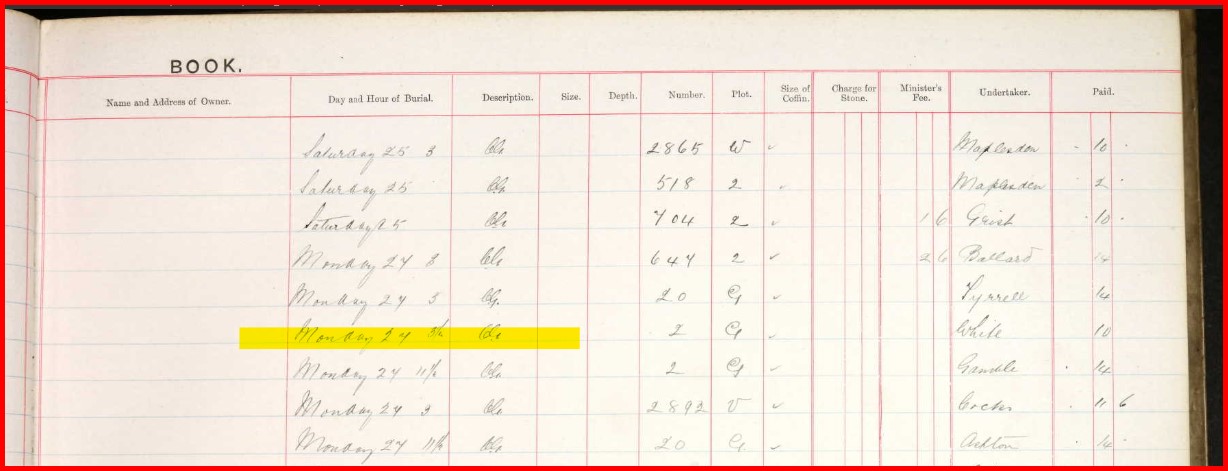 BOOK.
Name and Address of Owner. Day and Hour of Burial. Description. Size. Depth. Number. Plot. Size of Coffin. Charge for Stone. Minister's Fee. Undertaker. Paid.
Saturday 25 3 2865 W Maplesden 10
Saturday 25 518 2 Maplesden 2
Saturday 25 704 2 1 6 Grist 10
Monday 27 3 647 2 2 6 Ballard 14
Monday 27 3 20 G Tyrrell 14
Monday 27 2 G White 10
Monday 27 11½ 2 G Gamble 14
Monday 27 3 2892 V Cocks 11 6
Monday 27 11½ 20 G Ashton 14